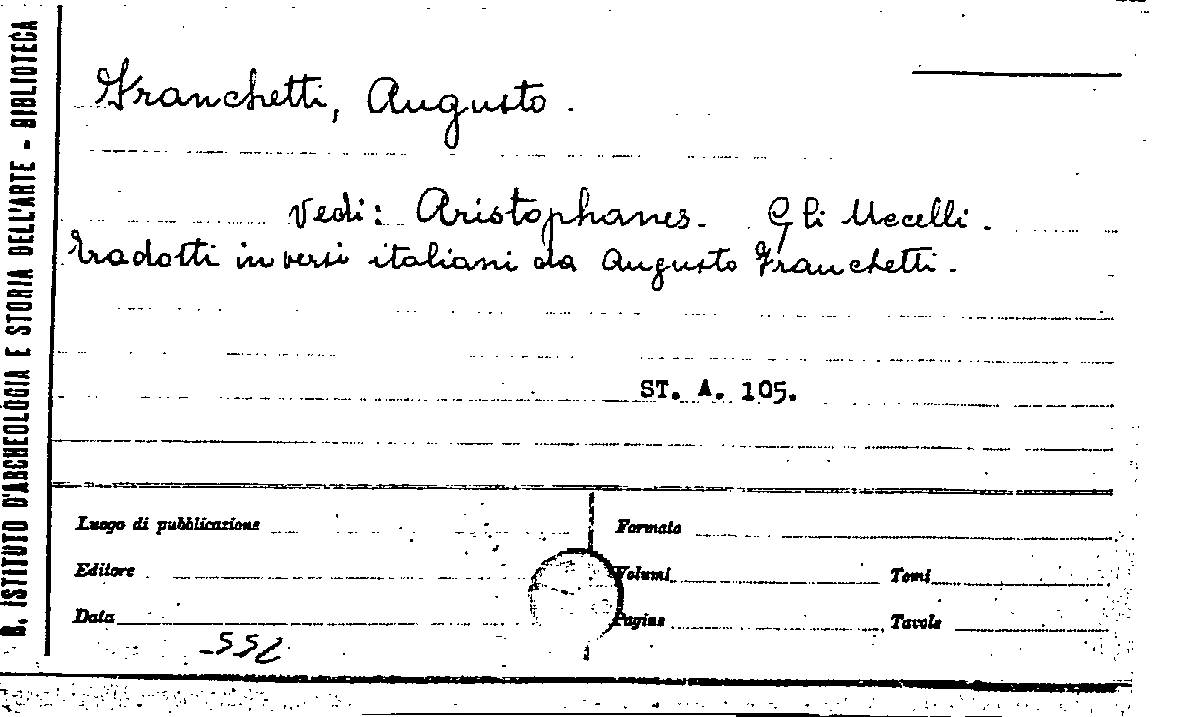 R. ISTITUTO D'ARCHEOLOGIA E STORIA DELL'ARTE - BIBLIOTECA
Franchetti, Augusto.
Vedi: Aristophanes. Gli Uccelli.
Tradotti in versi italiani da Augusto Franchetti.
ST. A. 105.
Luogo di pubblicazione
Formato
Editore
Volumi
Tomi
Data
Pagine
Tavole